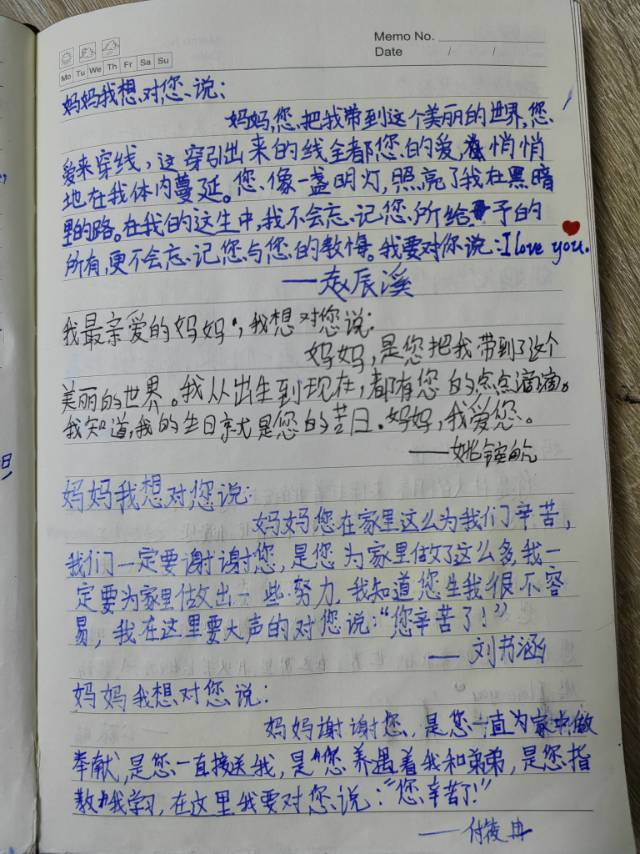 Memo No.
Mo Tu We Th Fr Sa Su
Date / /
妈妈我想对您说:
妈妈,您把我带到这个美丽的世界,您
爱来穿线,这穿引出来的线全都您的爱,悄悄
地在我体内蔓延。您像一盏明灯,照亮了我在黑暗
里的路。在我的这生中,我不会忘记您所给予的
所有,更不会忘记您与您的教悔。我要对你说:I love you.
——赵辰溪
我最亲爱的妈妈,我想对您说:
妈妈,是您把我带到了这个
美丽的世界。我从出生到现在,都有您的点点滴滴。
我知道,我的生日京尤是您的苦日.妈妈,我爱您。
——姚
妈妈我想对您说:
妈妈您在家里这么为我们辛苦,
我们一定要谢谢您,是您为家里做了这么多,我一
定要为家里做出一些努力,我知道您生我很不容
易,我在这里要大声的对您说:“您辛苦了!”
——刘书涵
妈妈我想对您说:
妈妈谢谢您,是您一直为家中做
奉献,是您一直接送我,是您养着我和弟弟,是您指
教我学习,在这里我要对您说:“您辛苦了!”
——付